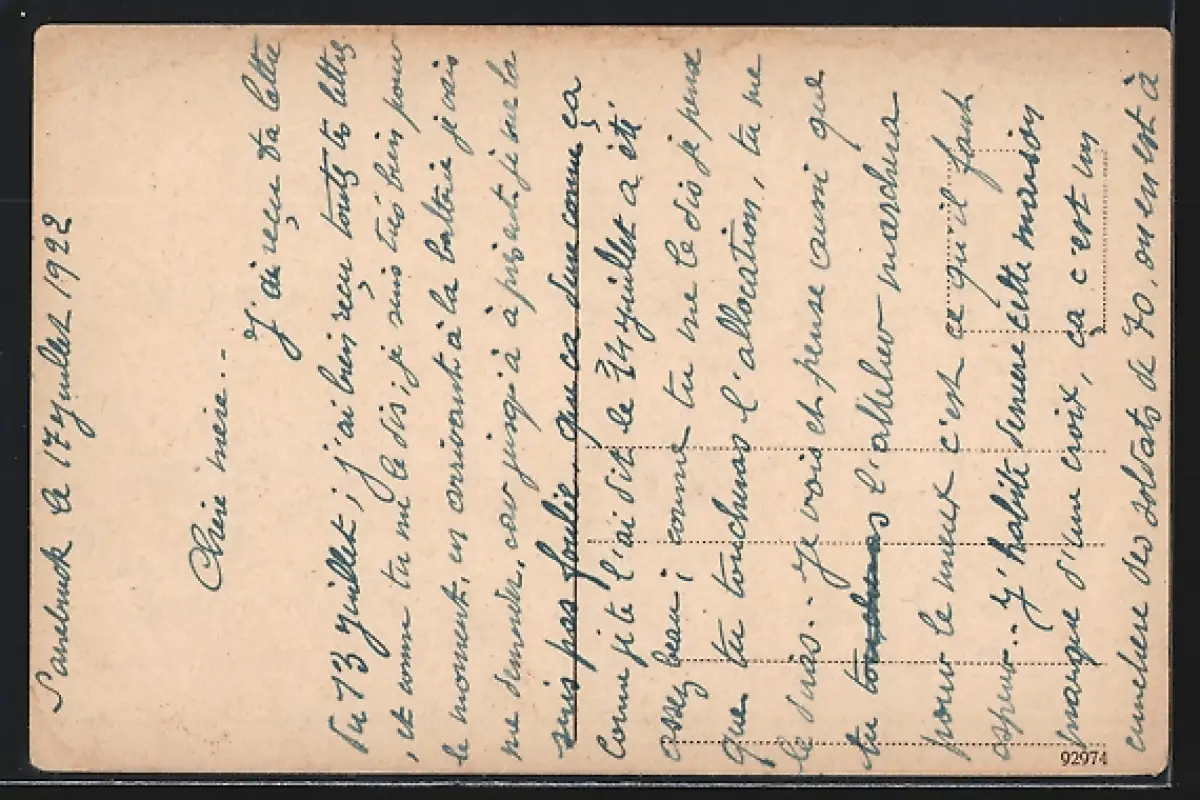 le 17 juillet 1922
Chère mère..
J'ai reçu ta lettre
du 13 juillet; j'ai bien reçu toutes tes lettres
, et comme tu me le dis, je suis très bien pour
le moment, en arrivant à la batterie je vais
me demander, car jusqu'à présent je ne la
suis pas que ça comme ça
Comme je te l'ai dit le 14 juillet a été
assez beau; comme tu me le dis je pense
que tu toucheras l'allocation, tu me
le diras.. Je vois et pense aussi que
tu l'attelier marchera
pour le mieux c'est ce qu'il faut
esperer.. J'habite cette maison
marqué d'une croix, ça c'est un
cimetiere des soldats de 70, on en est à
92974